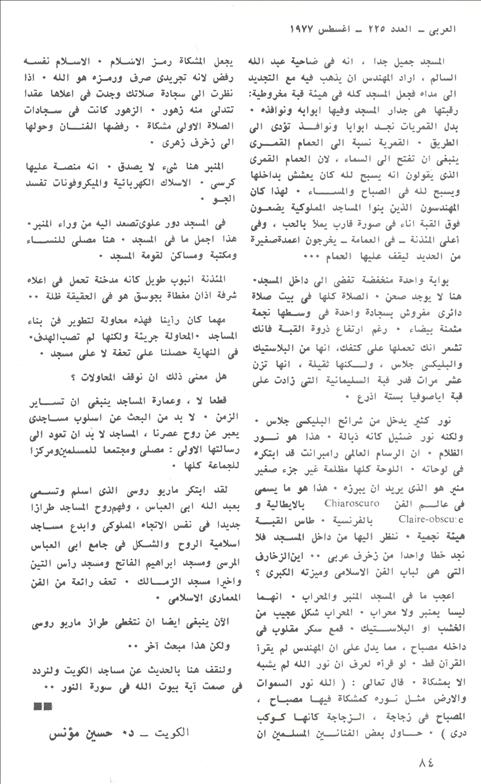 العربي – العدد ٢٢٥ – اغسطس ١٩٧٧
المسجد جميل جدا ، انه فى ضاحية عبد الله
السالم ، اراد المهندس ان يذهب فيه مع التجديد
الى مداه فجعل المسجد كله فى هيئة قبة مخروطية:
رقبتها هى جدار المسجد وفيها ابوابه ونوافذه •
بدل القمريات نجد ابوابا ونوافذ تؤدى الى
الطريق • القمرية نسبة الى الحمام القمرى
ينبغى ان تفتح الى السماء ، لان الحمام القمرى
الذى يقولون انه يسبح لله كان يعشش بداخلها
ويسبح لله فى الصباح والمساء • لهذا كان
المهندسون الذين بنوا المساجد المملوكية يضعون
فوق القبة اناء فى صورة قارب يملأ بالحب ، وفى
أعلى المئذنة – فى العمامة – يخرجون اعمدةصغيرة
من الحديد ليقف عليها الحمام •••
بوابة واحدة منخفضة تفضى الى داخل المسجد•
هنا لا يوجد صحن • الصلاة كلها فى بيت صلاة
دائرى مفروش بسجادة واحدة فى وسطها نجمة
مثمنة بيضاء • رغم ارتفاع ذروة القبة فانك
تشعر انك تحملها على كتفك، انها من البلاستيك
والبليكسى جلاس ، ولكنها ثقيلة ، انها تزن
عشر مرات قدر قبة السليمانية التى زادت على
قبة اياصوفيا بستة اذرع •
نور كثير يدخل من شرائح البليكسى جلاس •
ولكنه نور ضئيل كانه ذبالة • هذا هو نور
الظلام • ان الرسام العالمى رامبرانت قد ابتكره
فى لوحاته • اللوحة كلها مظلمة غير جزء صغير
منير هو الذى يريد ان يبرزه • هذا هو ما يسمى
فى عالم الفن Chiaroscuro بالايطالية و
Claire-obscure بالفرنسية • طاس القبة
هيئة نجمية • ننظر اليها من داخل المسجد فلا
نجد خطا واحدا من زخرف عربى •• اين الزخارف
التى هى لباب الفن الاسلامى وميزته الكبرى ؟
اعجب ما فى المسجد المنبر والمحراب • انهما
ليسا بمنبر ولا محراب • المحراب شكل عجيب من
الخشب او البلاستيك • قمع سكر مقلوب فى
داخله مصباح ، مما يدل على ان المهندس لم يقرأ
القرآن قط • لو قرأه لعرف ان نور الله لم يشبه
الا بمشكاة • قال تعالى : ( الله نور السموات
والارض مثل نوره كمشكاة فيها مصباح ،
المصباح فى زجاجة ، الزجاجة كانها كوكب
درى ) • حاول بعض الفنانين المسلمين ان
يجعل المشكاة رمز الاسلام • الاسلام نفسه
رفض لانه تجريدى صرف ورمزه هو الله • اذا
نظرت الى سجادة صلاتك وجدت فى اعلاها عقدا
تتدلى منه زهور • الزهور كانت فى سجادات
الصلاة الاولى مشكاة • رفضها الفنان وحولها
الى زخرف زهرى •
المنبر هنا شىء لا يصدق • انه منصة عليها
كرسى • الاسلاك الكهربائية والميكروفونات تفسد
الجو •
فى المسجد دور علوى تصعد اليه من وراء المنبر•
هذا اجمل ما فى المسجد • هنا مصلى للنساء
ومكتبة ومساكن لقومة المسجد •
المئذنة انبوب طويل كانه مدخنة تحمل فى اعلاه
شرفة اذان مغطاة بجوسق هو فى الحقيقة ظلة ••
مهما كان رأينا فهذه محاولة لتطوير فن بناء
المساجد •المحاولة جريئة ولكنها لم تصب الهدف•
فى النهاية حصلنا على تحفة لا على مسجد •
هل معنى ذلك ان نوقف المحاولات ؟
قطعا لا ، وعمارة المساجد ينبغى ان تساير
الزمن • لا بد من البحث عن اسلوب مساجدى
يعبر عن روح عصرنا ، المساجد لا بد ان تعود الى
رسالتها الاولى : مصلى ومجتمعا للمسلمين ومركزا
للجماعة كلها •
لقد ابتكر ماريو روسى الذى اسلم وتسمى
بعبد الله ابى العباس ، وفهم روح المساجد طرازا
جديدا فى نفس الاتجاه المملوكى وابدع مساجد
اسلامية الروح والشكل فى جامع ابى العباس
المرسى ومسجد ابراهيم الفاتح ومسجد رأس التين
واخيرا مسجد الزمالك • تحف رائعة من الفن
المعمارى الاسلامى •
الآن ينبغى ايضا ان نتخطى طراز ماريو روسى
ولكن هذا مبحث آخر ••
ولنقف هنا بالحديث عن مساجد الكويت ولنردد
فى صمت آية بيوت الله فى سورة النور ••
الكويت – د• حسين مؤنس
٨٤